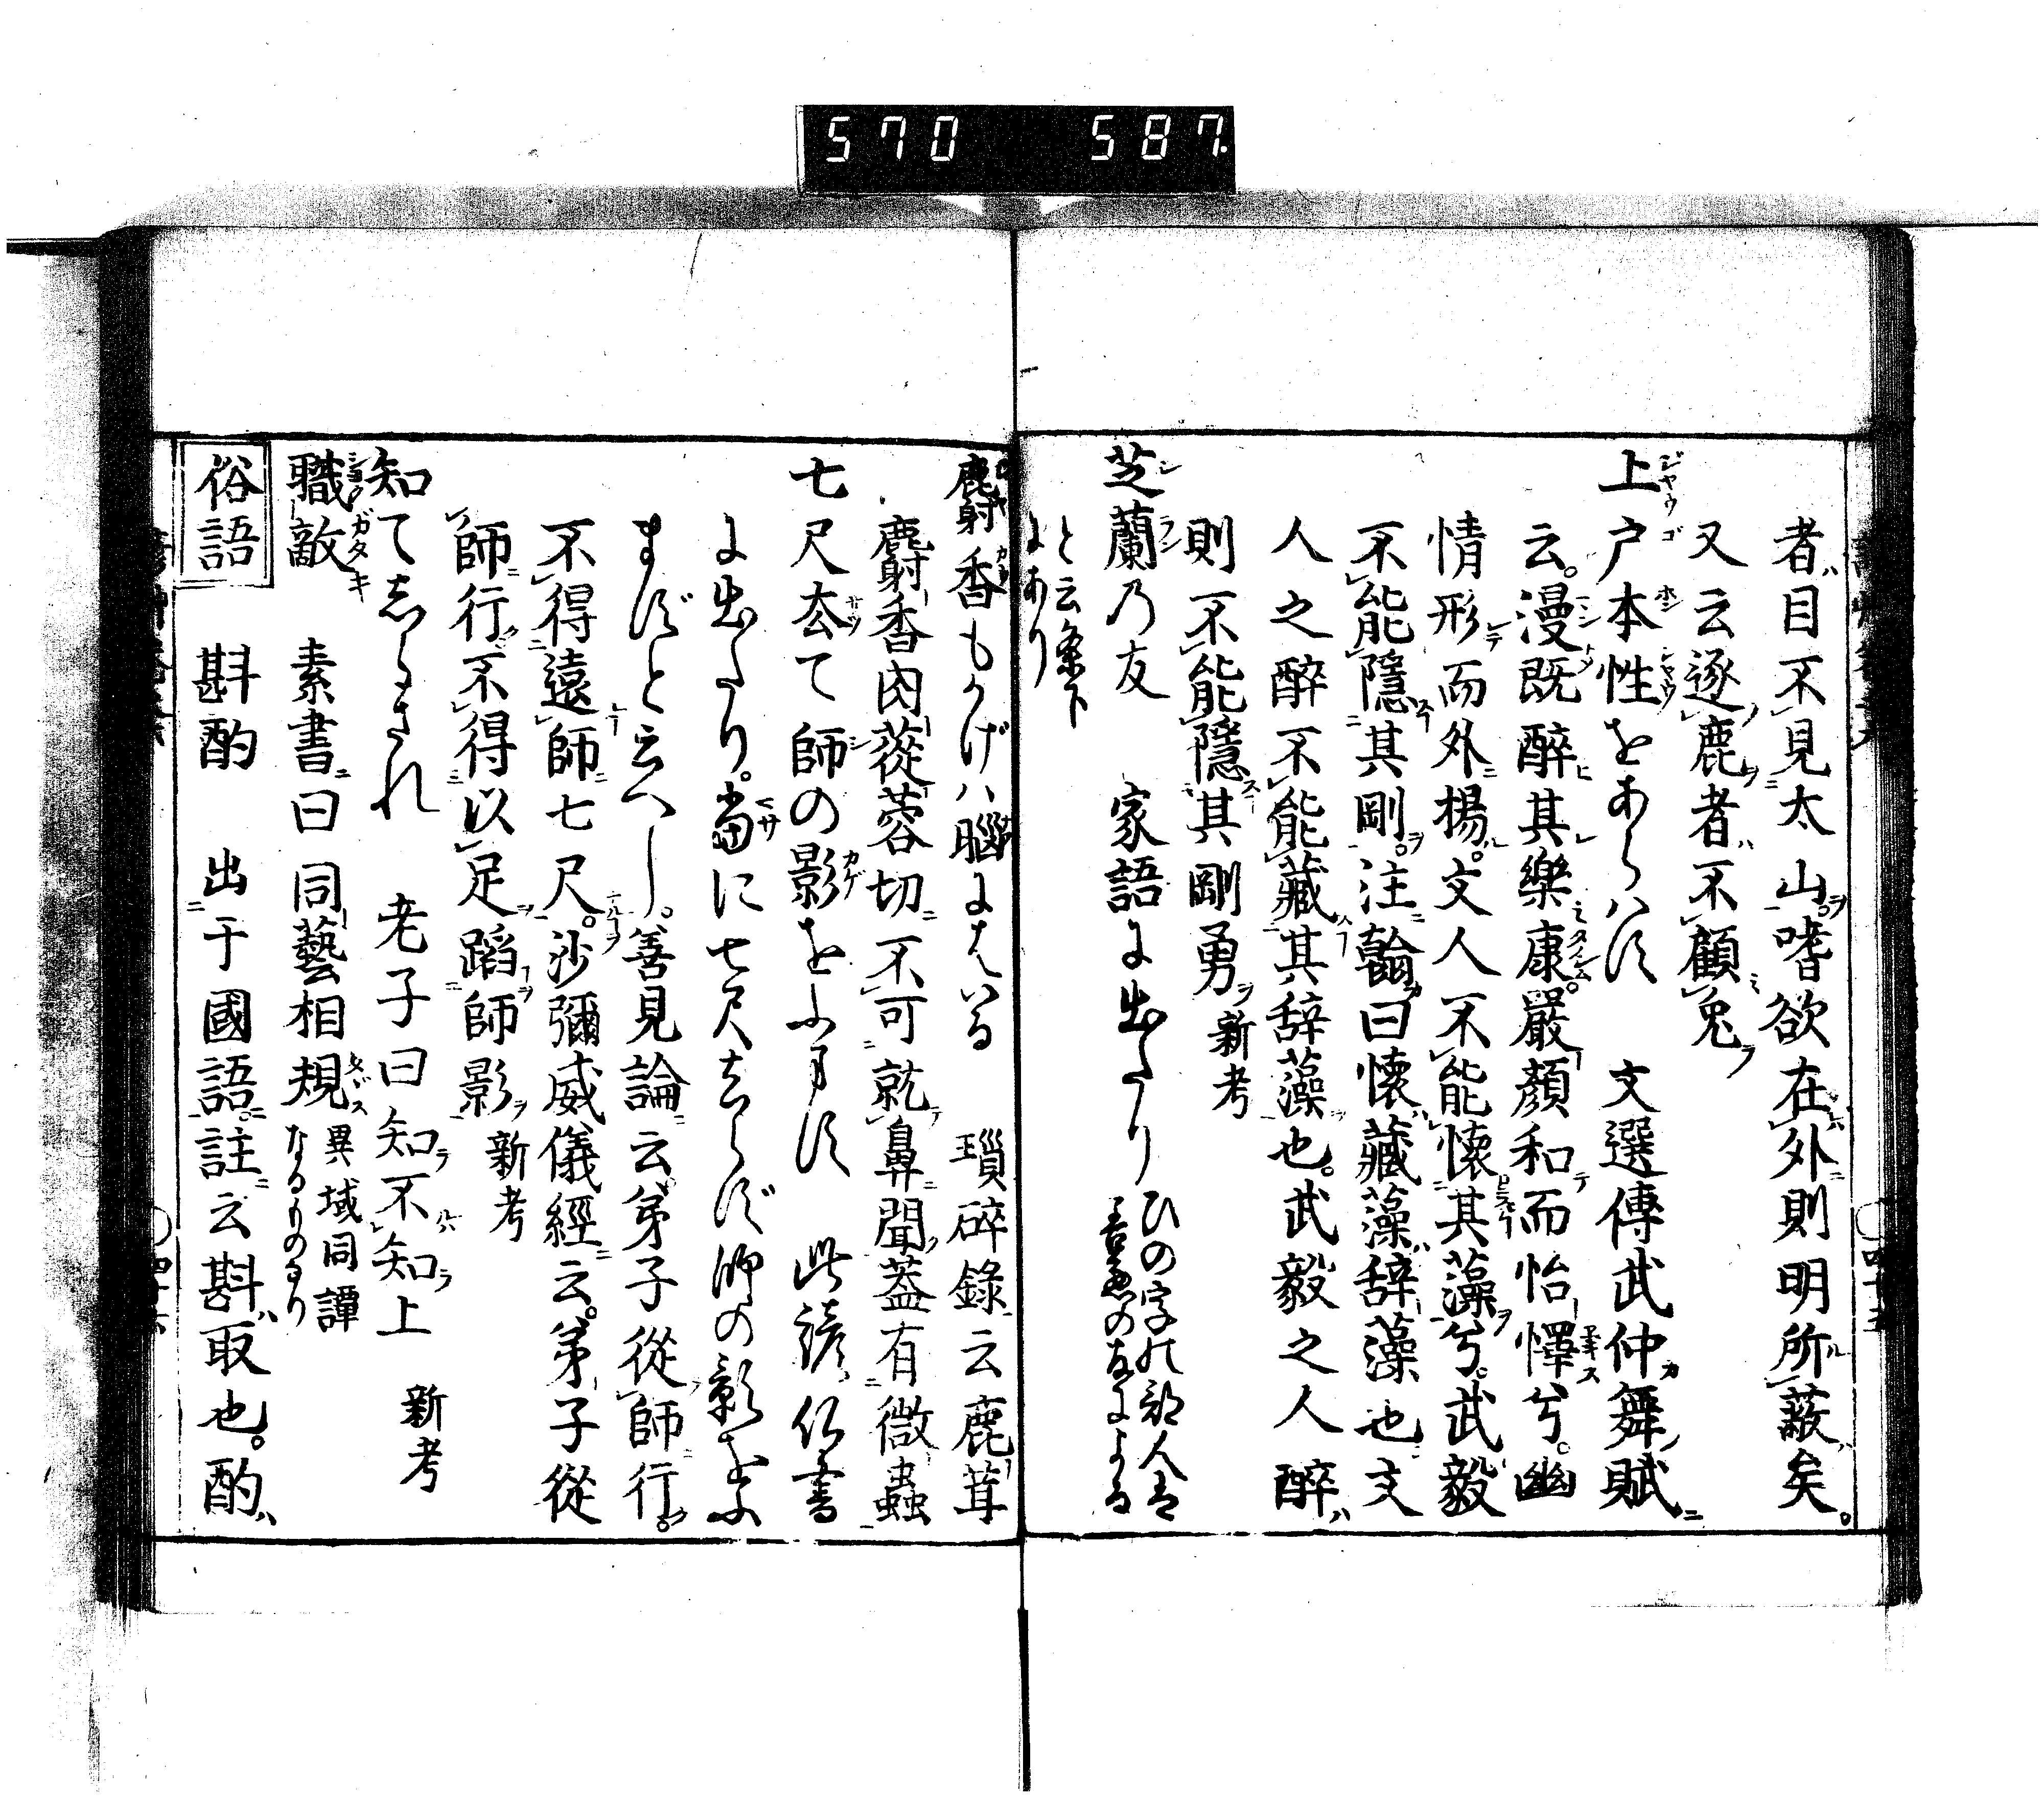 570 587.
者目不見太山嗜欲在外則明所蔽矣。
又云逐鹿者不顧兎
上戸本性をあらハす 文選傅武仲舞賦
云。漫既醉其樂康。嚴顔和而怡懌兮。幽
情形而外揚。文人不能懷其藻兮。武毅
不能隱其剛。注翰曰懷藏藻辞藻也文
人之醉不能藏其辞藻也。武毅之人醉
則不能隱其剛勇 新考
芝蘭乃友 家語に出たり ひの字の部人は
善悪の友による
と云条下
にあり
麝香もかげハ腦にはいる 瑣碎錄云鹿茸
麝香肉蓯蓉切不可就鼻聞蓋有微蟲
七尺去て師の影をふまず 此諺仏書
に出たり。當に七尺さらず師の影をふ
まずと云へし。善見論云弟子從師行。
不得遠師七尺。沙彌威儀經云。弟子從
師行不得以足蹈師影 新考
知てしらされ 老子曰知不知上 新考
職敵 素書曰同藝相規 異域同譚
なるものなり
俗語 斟酌 出于國語。註云斟取也。酌